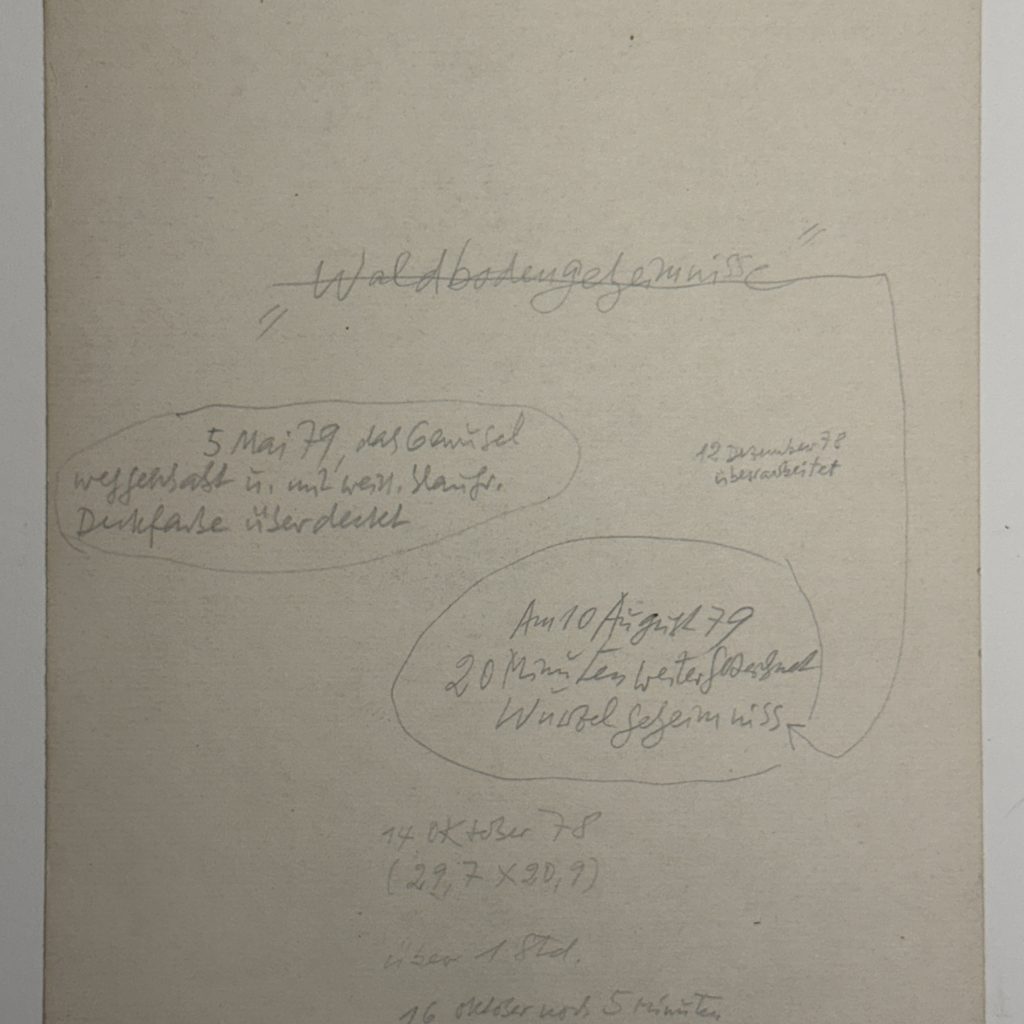 "Waldbodengeheimnisse"
5 Mai 79, das Gewusel
weggeschabt u. mit weiss. blaugr.
Deckfarbe überdeckt
12 Dezember 78
überarbeitet
Am 10 August 79
20 Minuten weitergezeichnet
Wurzelgeheimniss
14 Oktober 78
(29,7 x 20,9)
über 1 Std.
16 Oktober noch 5 Minuten